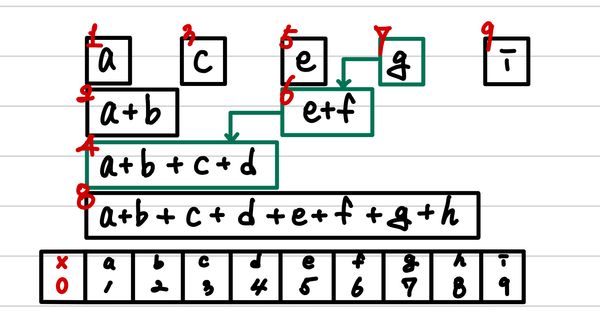 1 3 5 7 9
a c e g i
2 6
a+b e+f
4
a+b+c+d
8
a+b+c+d+e+f+g+h
x a b c d e f g h i
0 1 2 3 4 5 6 7 8 9